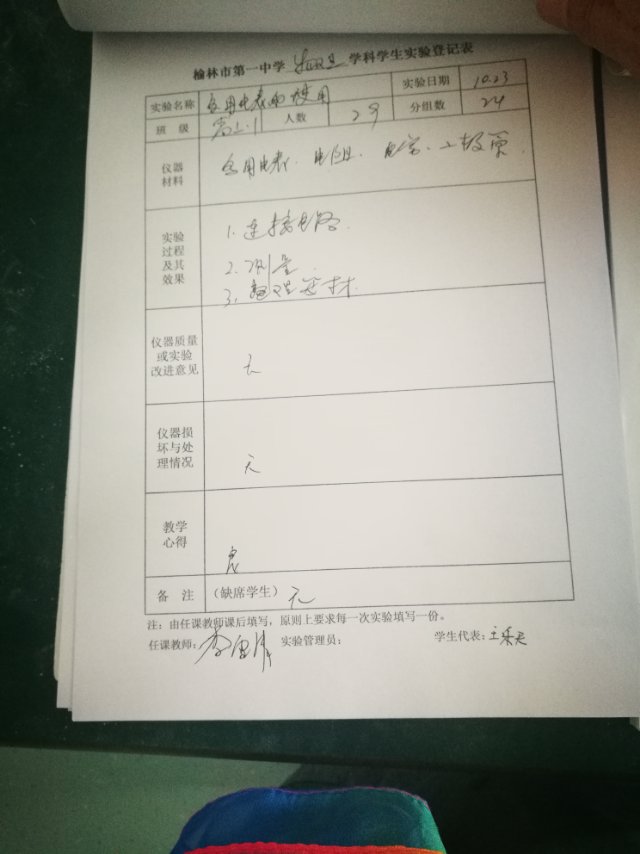 榆林市第一中学 物理 学科学生实验登记表
实验名称 多用电表的使用 实验日期 10.23
班 级 高二.11 人数 29 分组数 24
仪器材料 多用电表. 电阻. 电容. 二极管.
实验过程及其效果
1. 连接电路.
2. 测量.
3. 整理器材.
仪器质量或实验改进意见 无
仪器损坏与处理情况 无
教学心得
备 注 (缺席学生) 无
注: 由任课教师课后填写, 原则上要求每一次实验填写一份。
任课教师: 实验管理员: 学生代表: